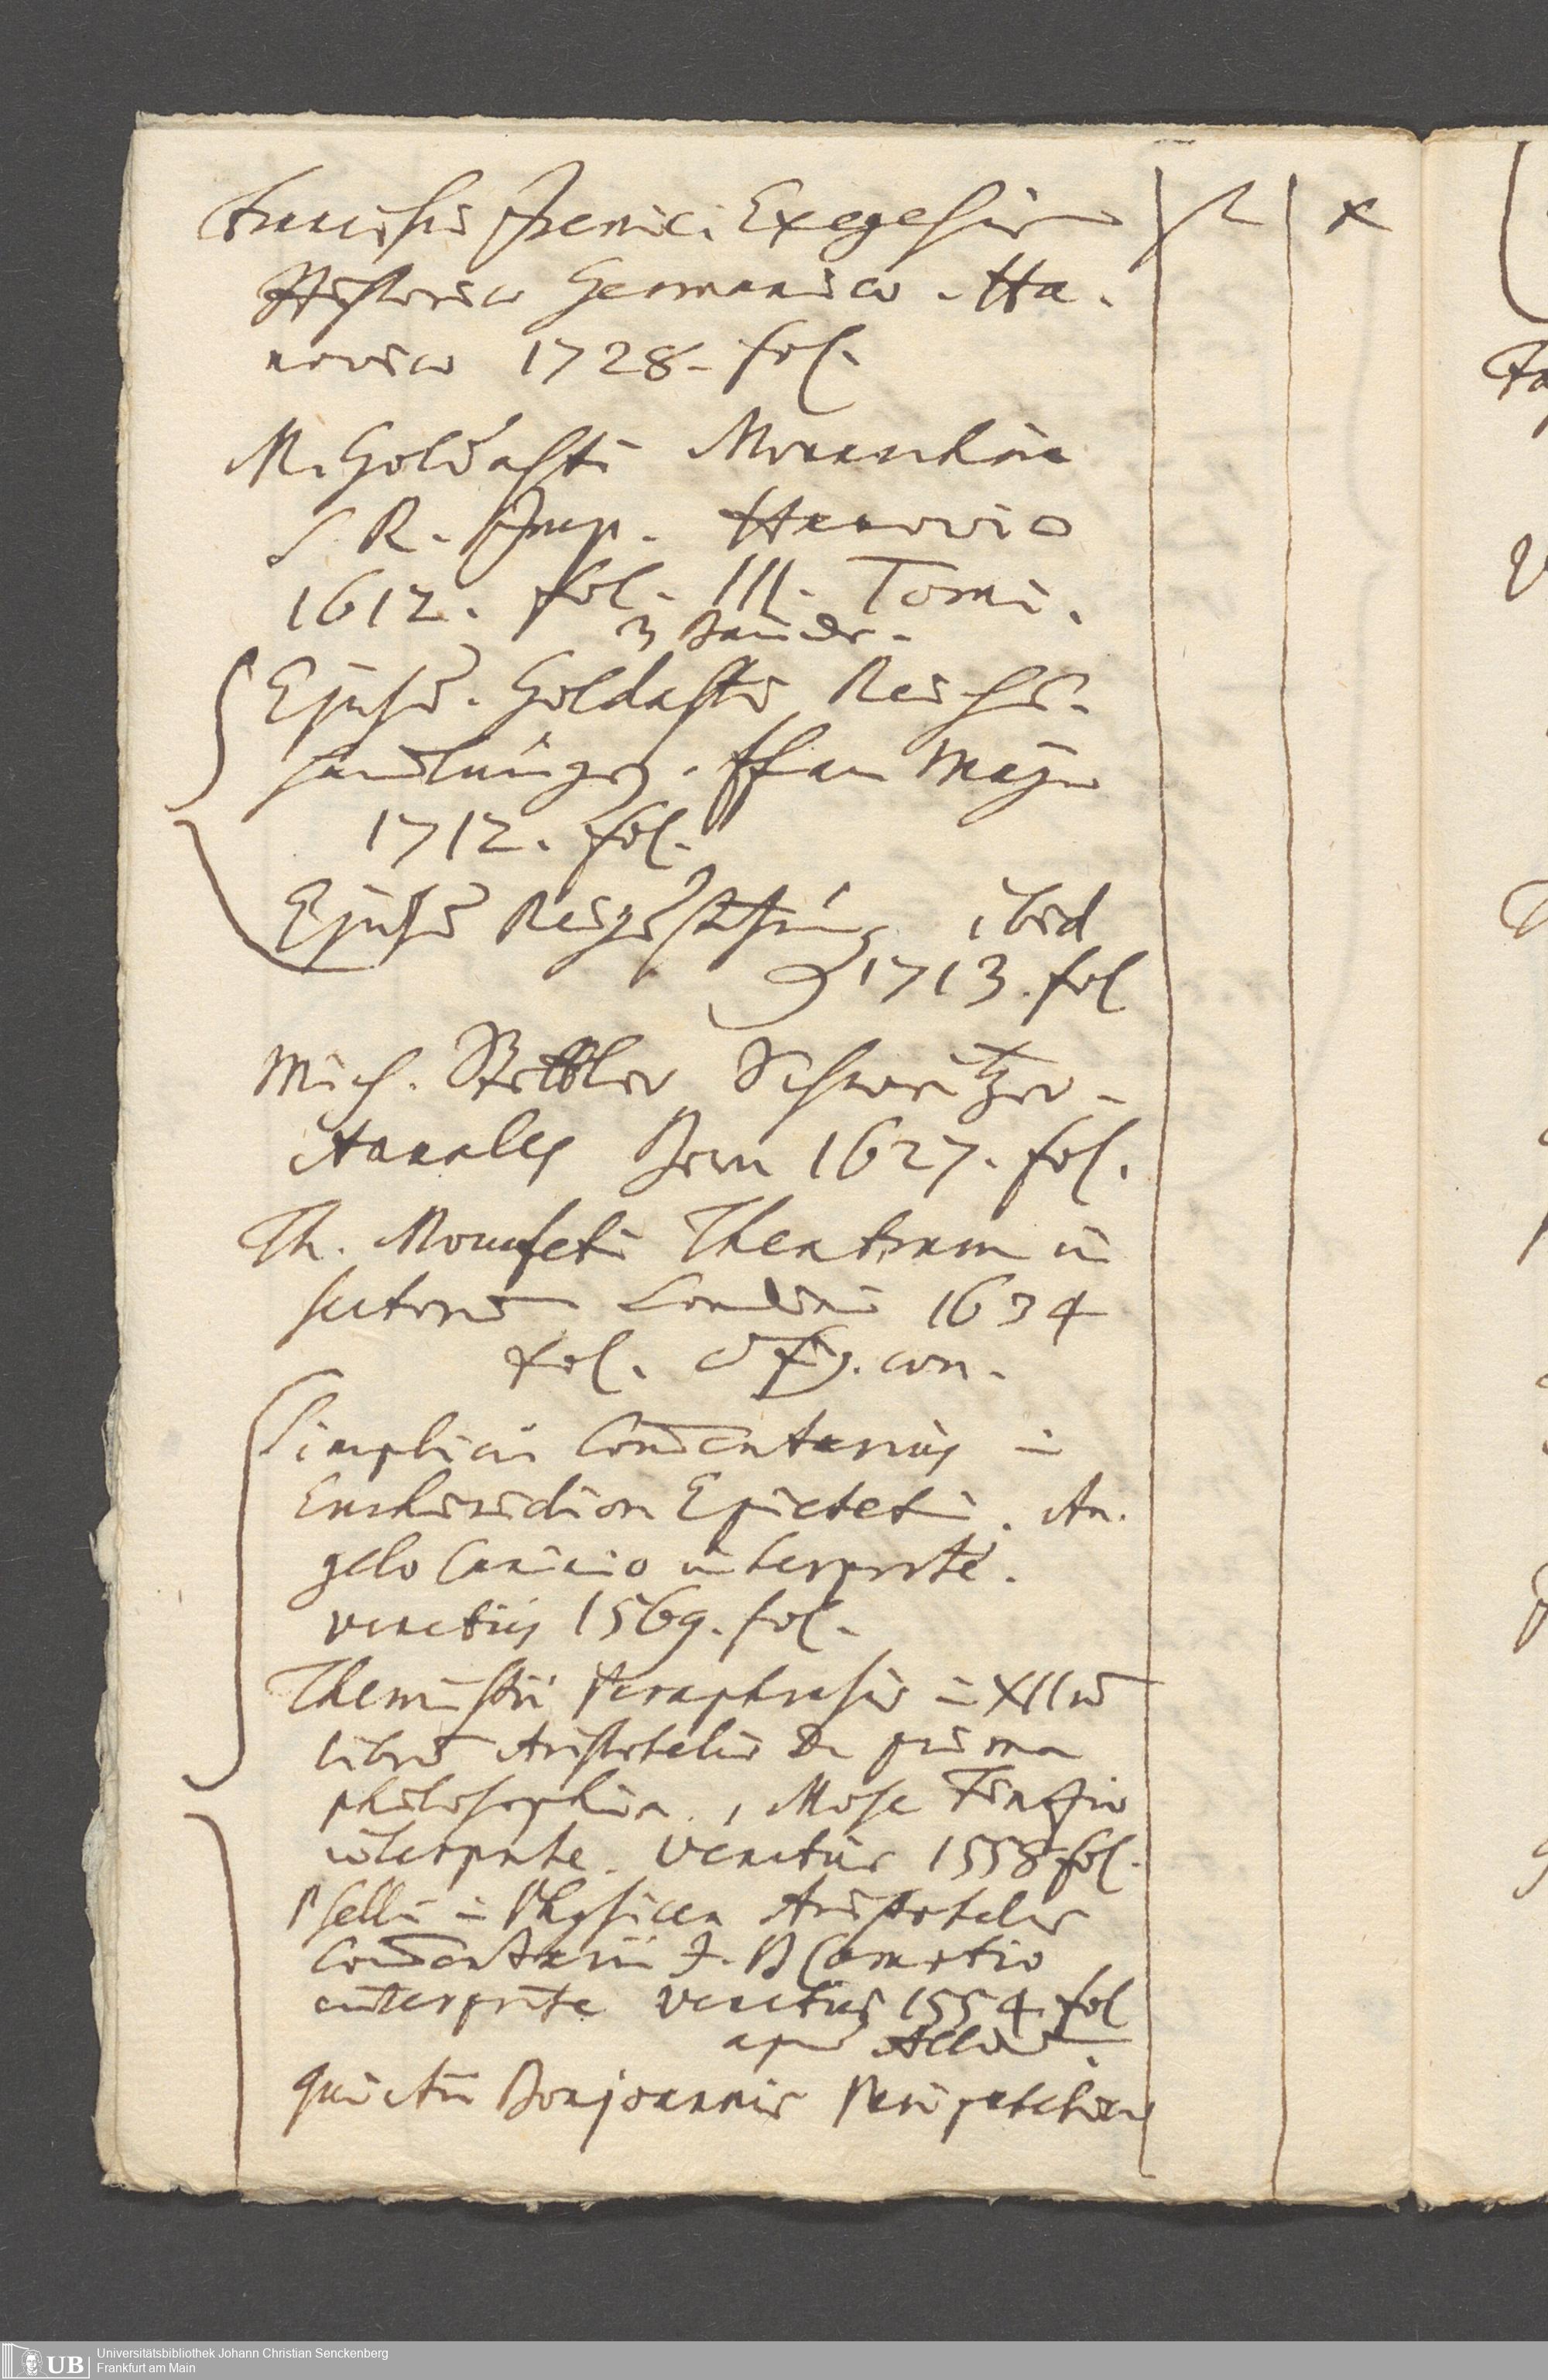 Francisci Irenici Exegesis
Historiæ Germaniæ. Ha-
noviæ 1728. fol.
M. Goldasti Monarchia
S. R. Imp. Hanoviæ
1612. fol. III. Tomi.
3 Bände.
Ejusd. Goldasti Reichs-
handlungen. ffran Mayn
1712. fol.
Ejusd Reichssatzung ibid
1713. fol
Mich. Stettler Schweitzer-
Annales Bern 1627. fol.
Th. Moufeti Theatrum in
sectorū Londini 1634
fol. c̄ fig. æn.
Simplicii Com̄entarius in
Enchiridion Epicteti. An-
gelo Caninio interprete.
venetiis 1569. fol.
Themistii Paraphrasis in XII ū
librū Aristotelis de prima
philosophia, Mose Finzio
interprete. Venetiis 1558 fol.
Pselli in Physicen Aristotelis
Com̄entarii J. B Camotio
interprete Venetiis 1554. fol
apud Aldū.
Quinctii Bonjoannis Peripatetica